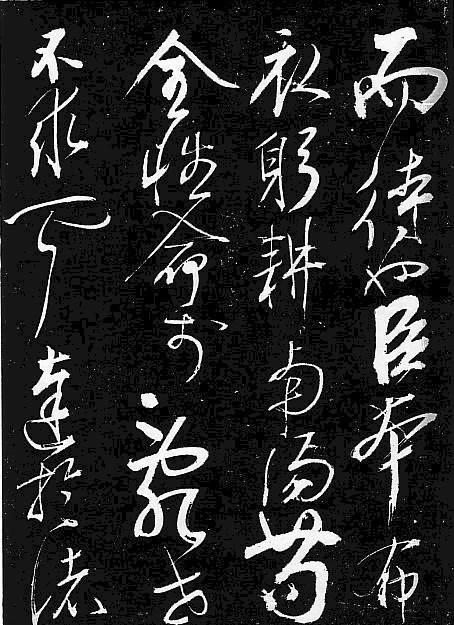 而待也臣本布
衣躬耕南陽苟
全性命於亂世
不求聞達於諸